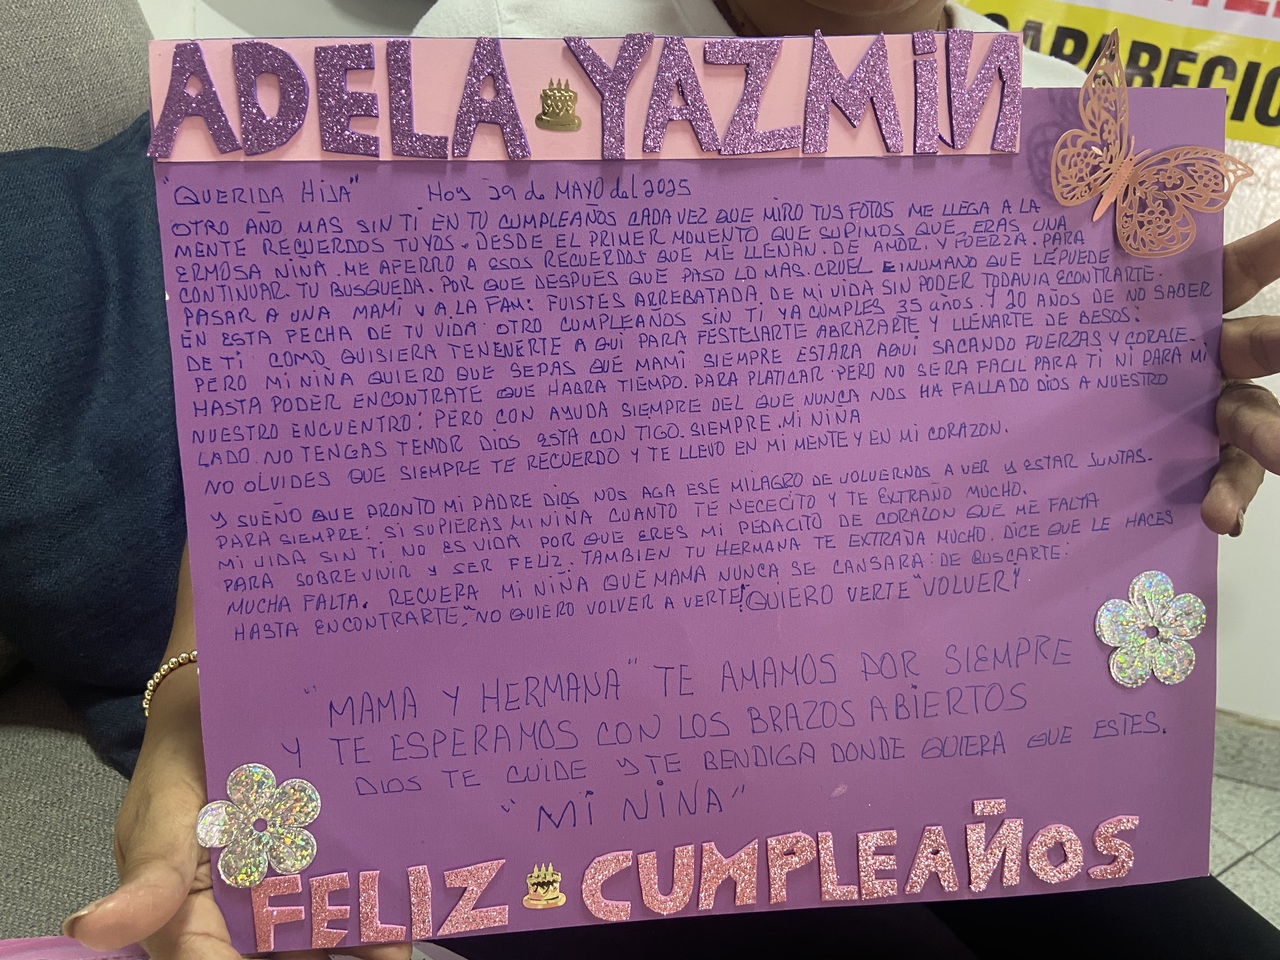 ADELA YAZMiN
APARECIO
"QUERIDA HIJA" HOY 29 de MAYO del 2025
OTRO AÑO MAS SIN TI EN TU CUMPLEAÑOS CADA VEZ QUE MIRO TUS FOTOS ME LLEGA A LA
MENTE RECUERDOS TUYOS. DESDE EL PRIMER MOMENTO QUE SUPIMOS QUE ERAS UNA
ERMOSA NIÑA. ME AFERRO A ESOS RECUERDOS QUE ME LLENAN. DE AMOR. Y FUERZA. PARA
CONTINUAR. TU BUSQUEDA. POR QUE DESPUES QUE PASO LO MAS. CRUEL E INUMANO QUE LE PUEDE
PASAR A UNA MAMI Y A LA FAM: FUISTES ARREBATADA. DE MI VIDA SIN PODER TODAVIA ECONTRARTE.
EN ESTA FECHA DE TU VIDA OTRO CUMPLEAÑOS SIN TI YA CUMPLES 35 años. Y 20 AÑOS DE NO SABER
DE TI COMO QUISIERA TENENERTE A QUI PARA FESTEJARTE ABRAZARTE Y LLENARTE DE BESOS:
PERO MI NIÑA QUIERO QUE SEPAS QUE MAMI SIEMPRE ESTARA AQUI SACANDO FUERZAS Y CORAJE.
HASTA PODER ENCONTRATE QUE HABRA TIEMPO. PARA PLATICAR. PERO NO SERA FACIL PARA TI NI PARA MI
NUESTRO ENCUENTRO: PERO CON AYUDA SIEMPRE DEL QUE NUNCA NOS HA FALLADO DIOS A NUESTRO
LADO. NO TENGAS TEMOR DIOS ESTA CON TIGO. SIEMPRE. MI NIÑA
NO OLVIDES QUE SIEMPRE TE RECUERDO Y TE LLEVO EN MI MENTE Y EN MI CORAZON.
Y SUEÑO QUE PRONTO MI PADRE DIOS NOS AGA ESE MILAGRO DE VOLVERNOS A VER Y ESTAR JUNTAS.
PARA SIEMPRE: SI SUPIERAS MI NIÑA CUANTO TE NECECITO Y TE EXTRAÑO MUCHO.
MI VIDA SIN TI NO ES VIDA POR QUE ERES MI PEDACITO DE CORAZON QUE ME FALTA
PARA SOBREVIVIR Y SER FELIZ. TAMBIEN TU HERMANA TE EXTRAÑA MUCHO. DICE QUE LE HACES
MUCHA FALTA. RECUERA MI NIÑA QUE MAMA NUNCA SE CANSARA: DE BUSCARTE:
HASTA ENCONTRARTE, "NO QUIERO VOLVER A VERTE! QUIERO VERTE "VOLVER"
"MAMA Y HERMANA" TE AMAMOS POR SIEMPRE
Y TE ESPERAMOS CON LOS BRAZOS ABiERTOS
DIOS TE CUIDE Y TE BENDIGA DONDE QUIERA QUE ESTES.
"MI NIÑA"
FELIZ CUMPLEAÑOS